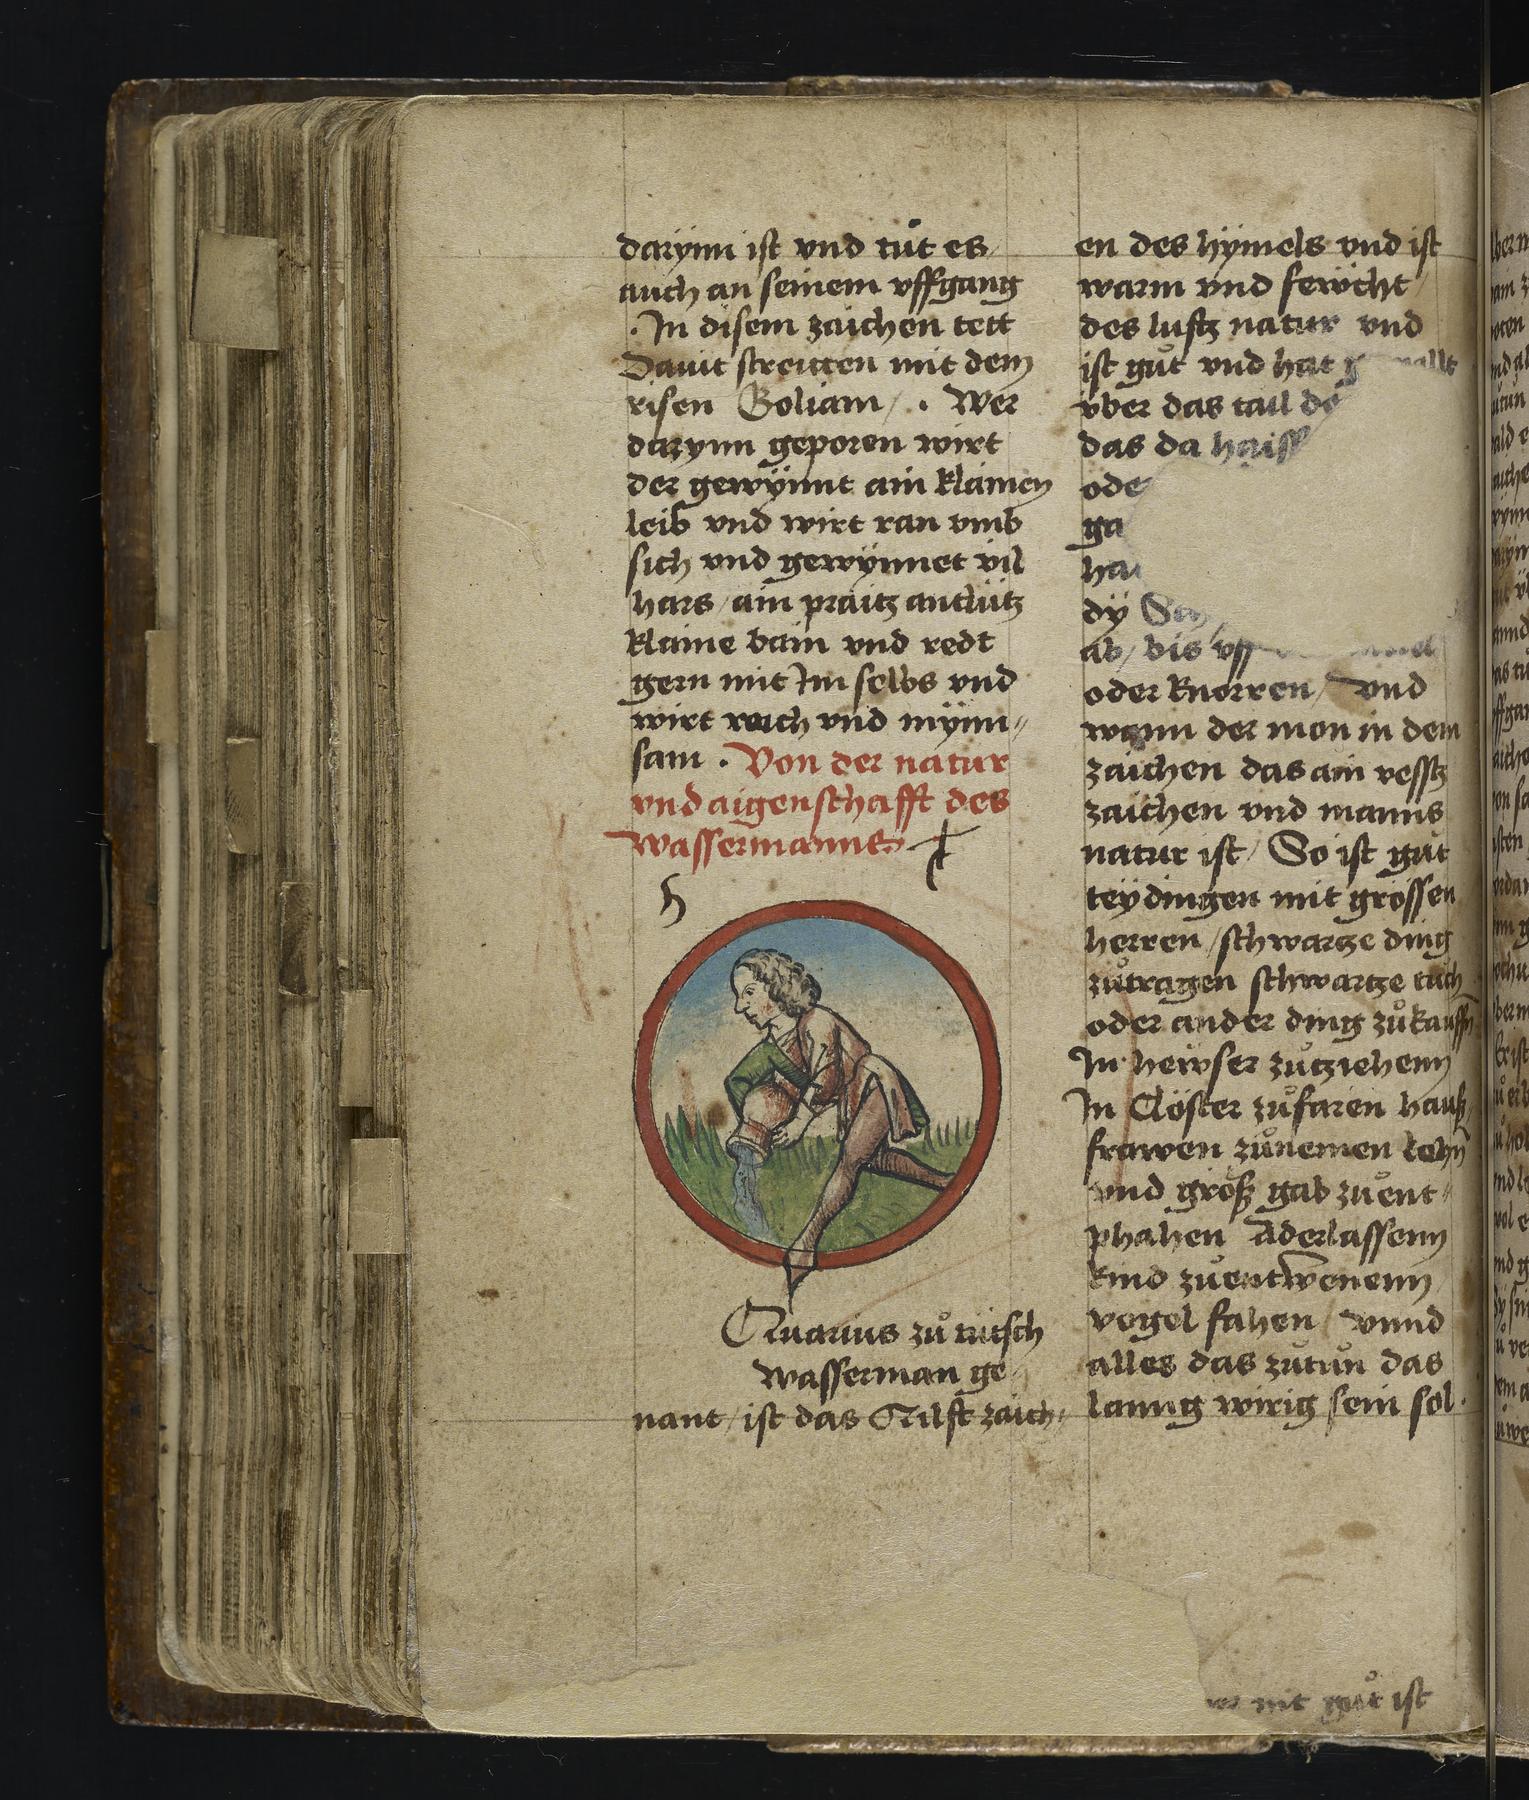 darÿnn ist vnd tůt es
auch an seinem vffgang
. In disem zaichen tett
Dauit streitten mit dem
risen Goliam / . Wer
darynn geporen wirt
der gewÿnnt ain klainen
leib vnd wirt ran vmb
sich vnd gewÿnnet vil
hars / ain praitz antlütz
klaine bain vnd redt
gern mit Im selbs vnd
wirt reich vnd mÿnn〃
sam . Von der natur
vnd aigenschafft des
wassermanns
Aquarius zů tütsch
wasserman ge
nant / ist das Ailfft zaich〃
en des hÿmels vnd ist
warm vnd fewcht /
des luftz natur vnd
ist gůt vnd hat
vber das tail
das da haiss
ode
ga
ha
dÿ
ab / bis vff
oder knorren / vnd
wann der mon in dem
zaichen das ain vesstz
zaichen vnd manns
natur ist / So ist gůt
teÿdingen mit grossen
herren / schwartze ding
zůtragen schwartze tůch
oder ander ding zůkauffn̄
In hewser zůtziehenn
In Clöster zůfaren hauß
frawen zůnemen lehn̄
vnd groß gab zuent〃
phahen Aderlassenn
kind zuentwenenn
vogel fahen / vnnd
alles das zůtůn das
lanng wirig sein sol .
nit gůt ist